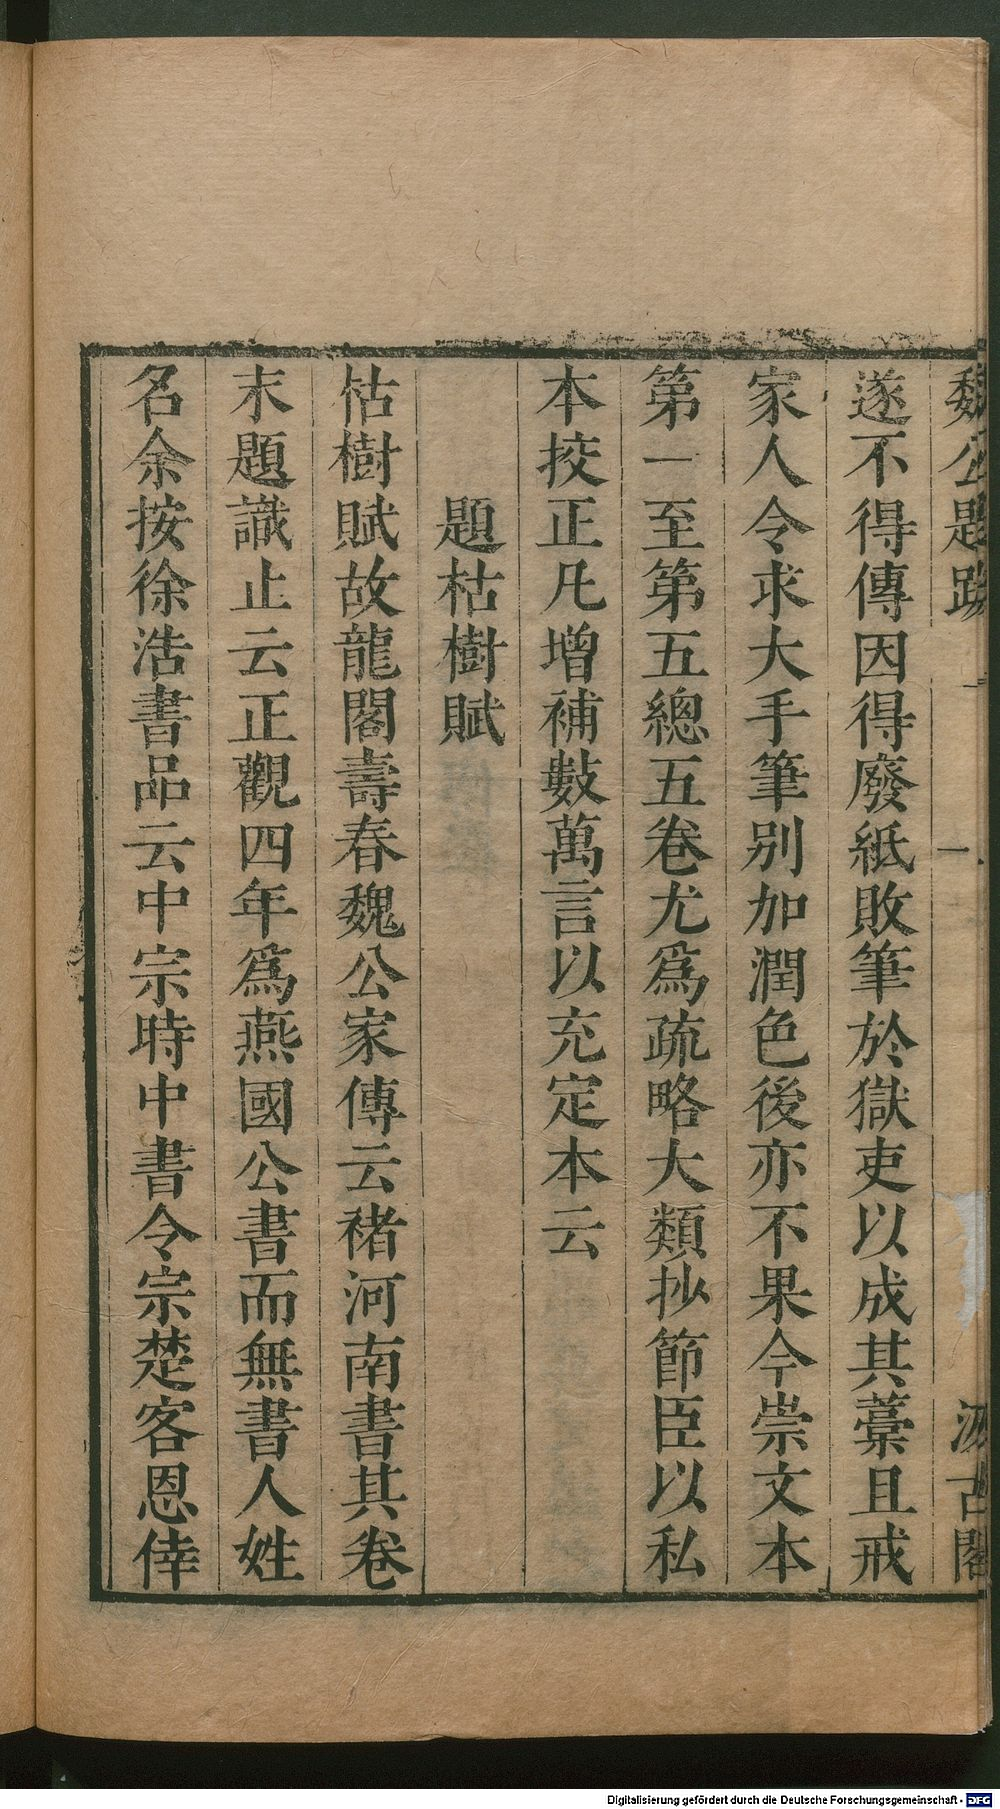 魏公題跋
一
汲古閣
遂不得傳因得廢紙敗筆於獄吏以成其藁且戒
家人令求大手筆别加潤色後亦不果今崇文本
第一至第五總五卷尤爲疏略大類抄節臣以私
本挍正凡增補數萬言以充定本云
題枯樹賦
枯樹賦故龍閣壽春魏公家傳云褚河南書其卷
末題識止云正觀四年爲燕國公書而無書人姓
名余按徐浩書品云中宗時中書令宗楚客恩倖
Digitalisierung gefördert durch die Deutsche Forschungsgemeinschaft - DFG